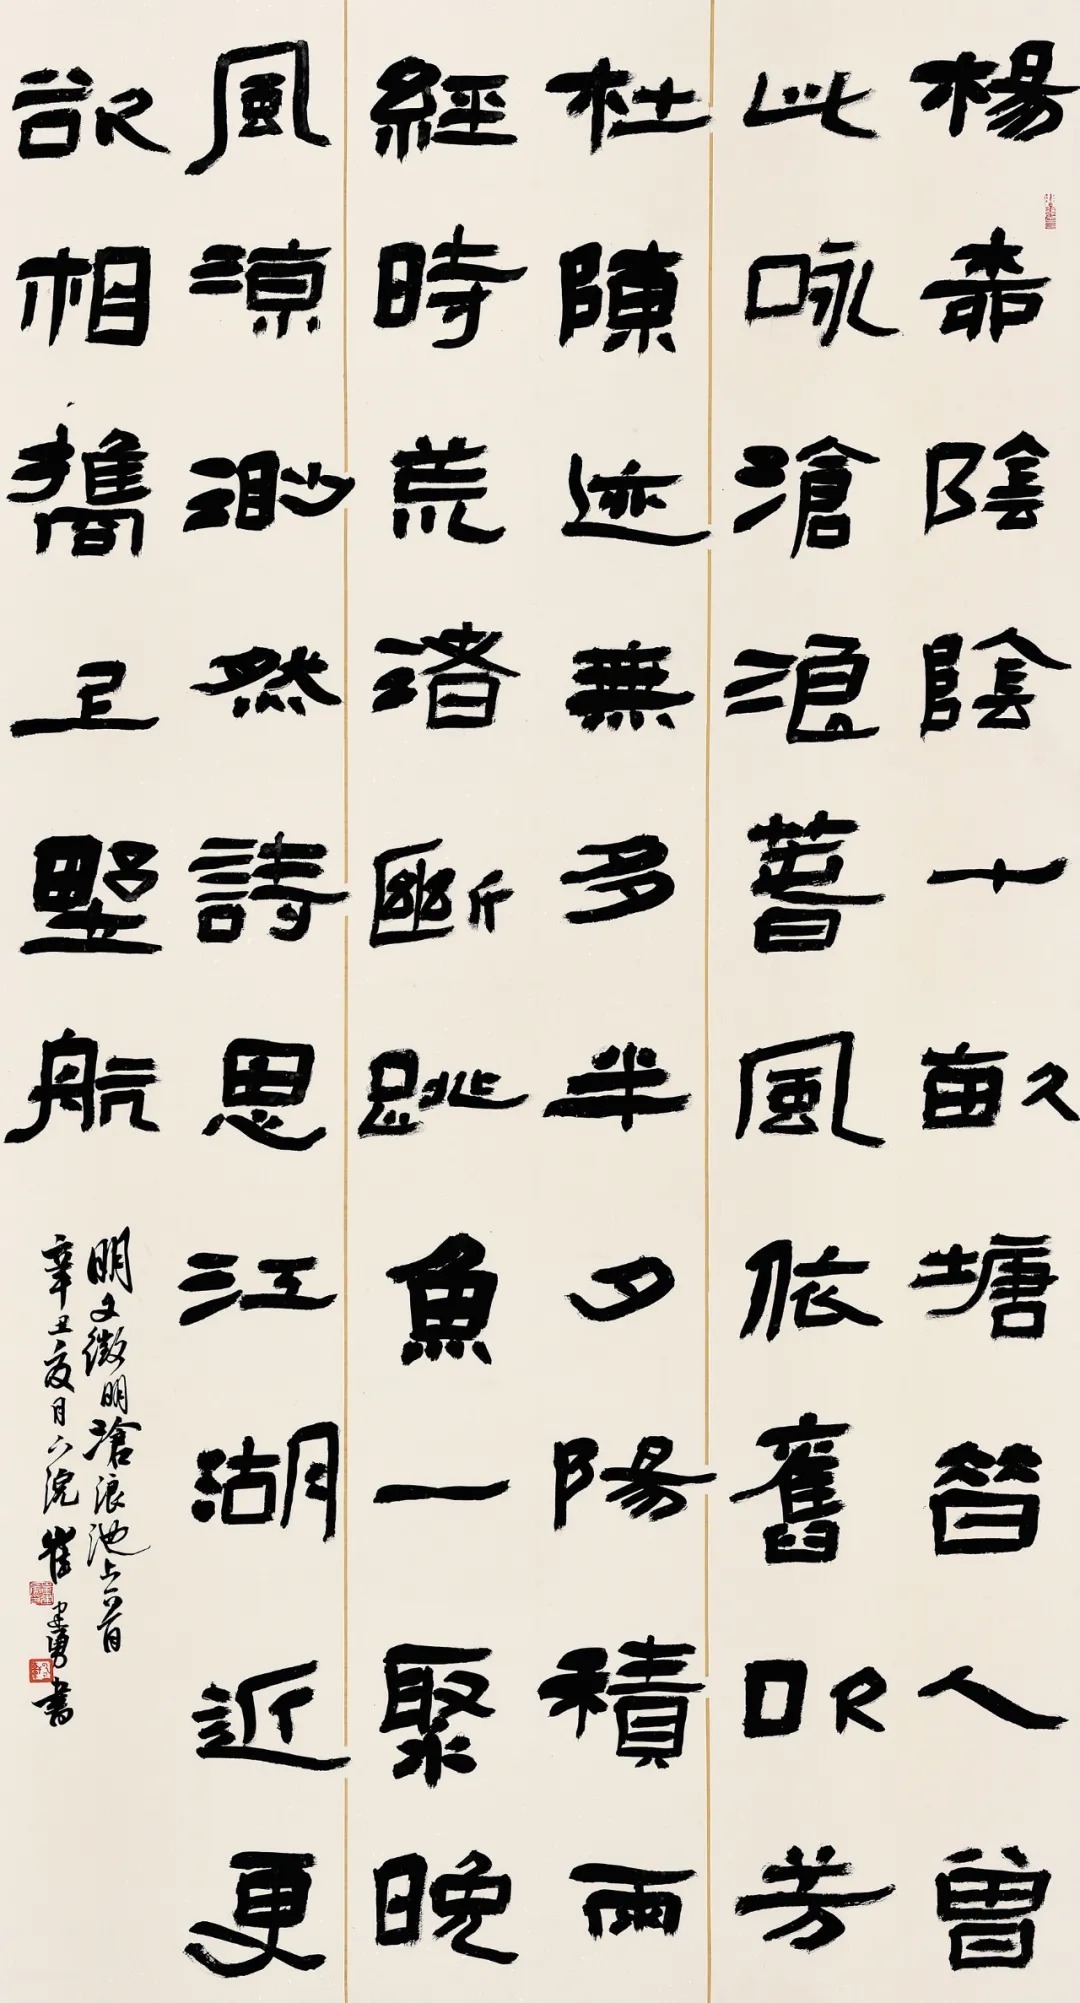 楊柳陰陰十畝塘昔人曾
此咏滄浪萅風依舊吹芳
杜陳迹無多半夕陽積雨
經時荒渚斷跳魚一聚晚
風涼渺然詩思江湖近更
欲相攜上墅航
明文徵明滄浪池上一首
辛丑夏月下浣崔建勇書